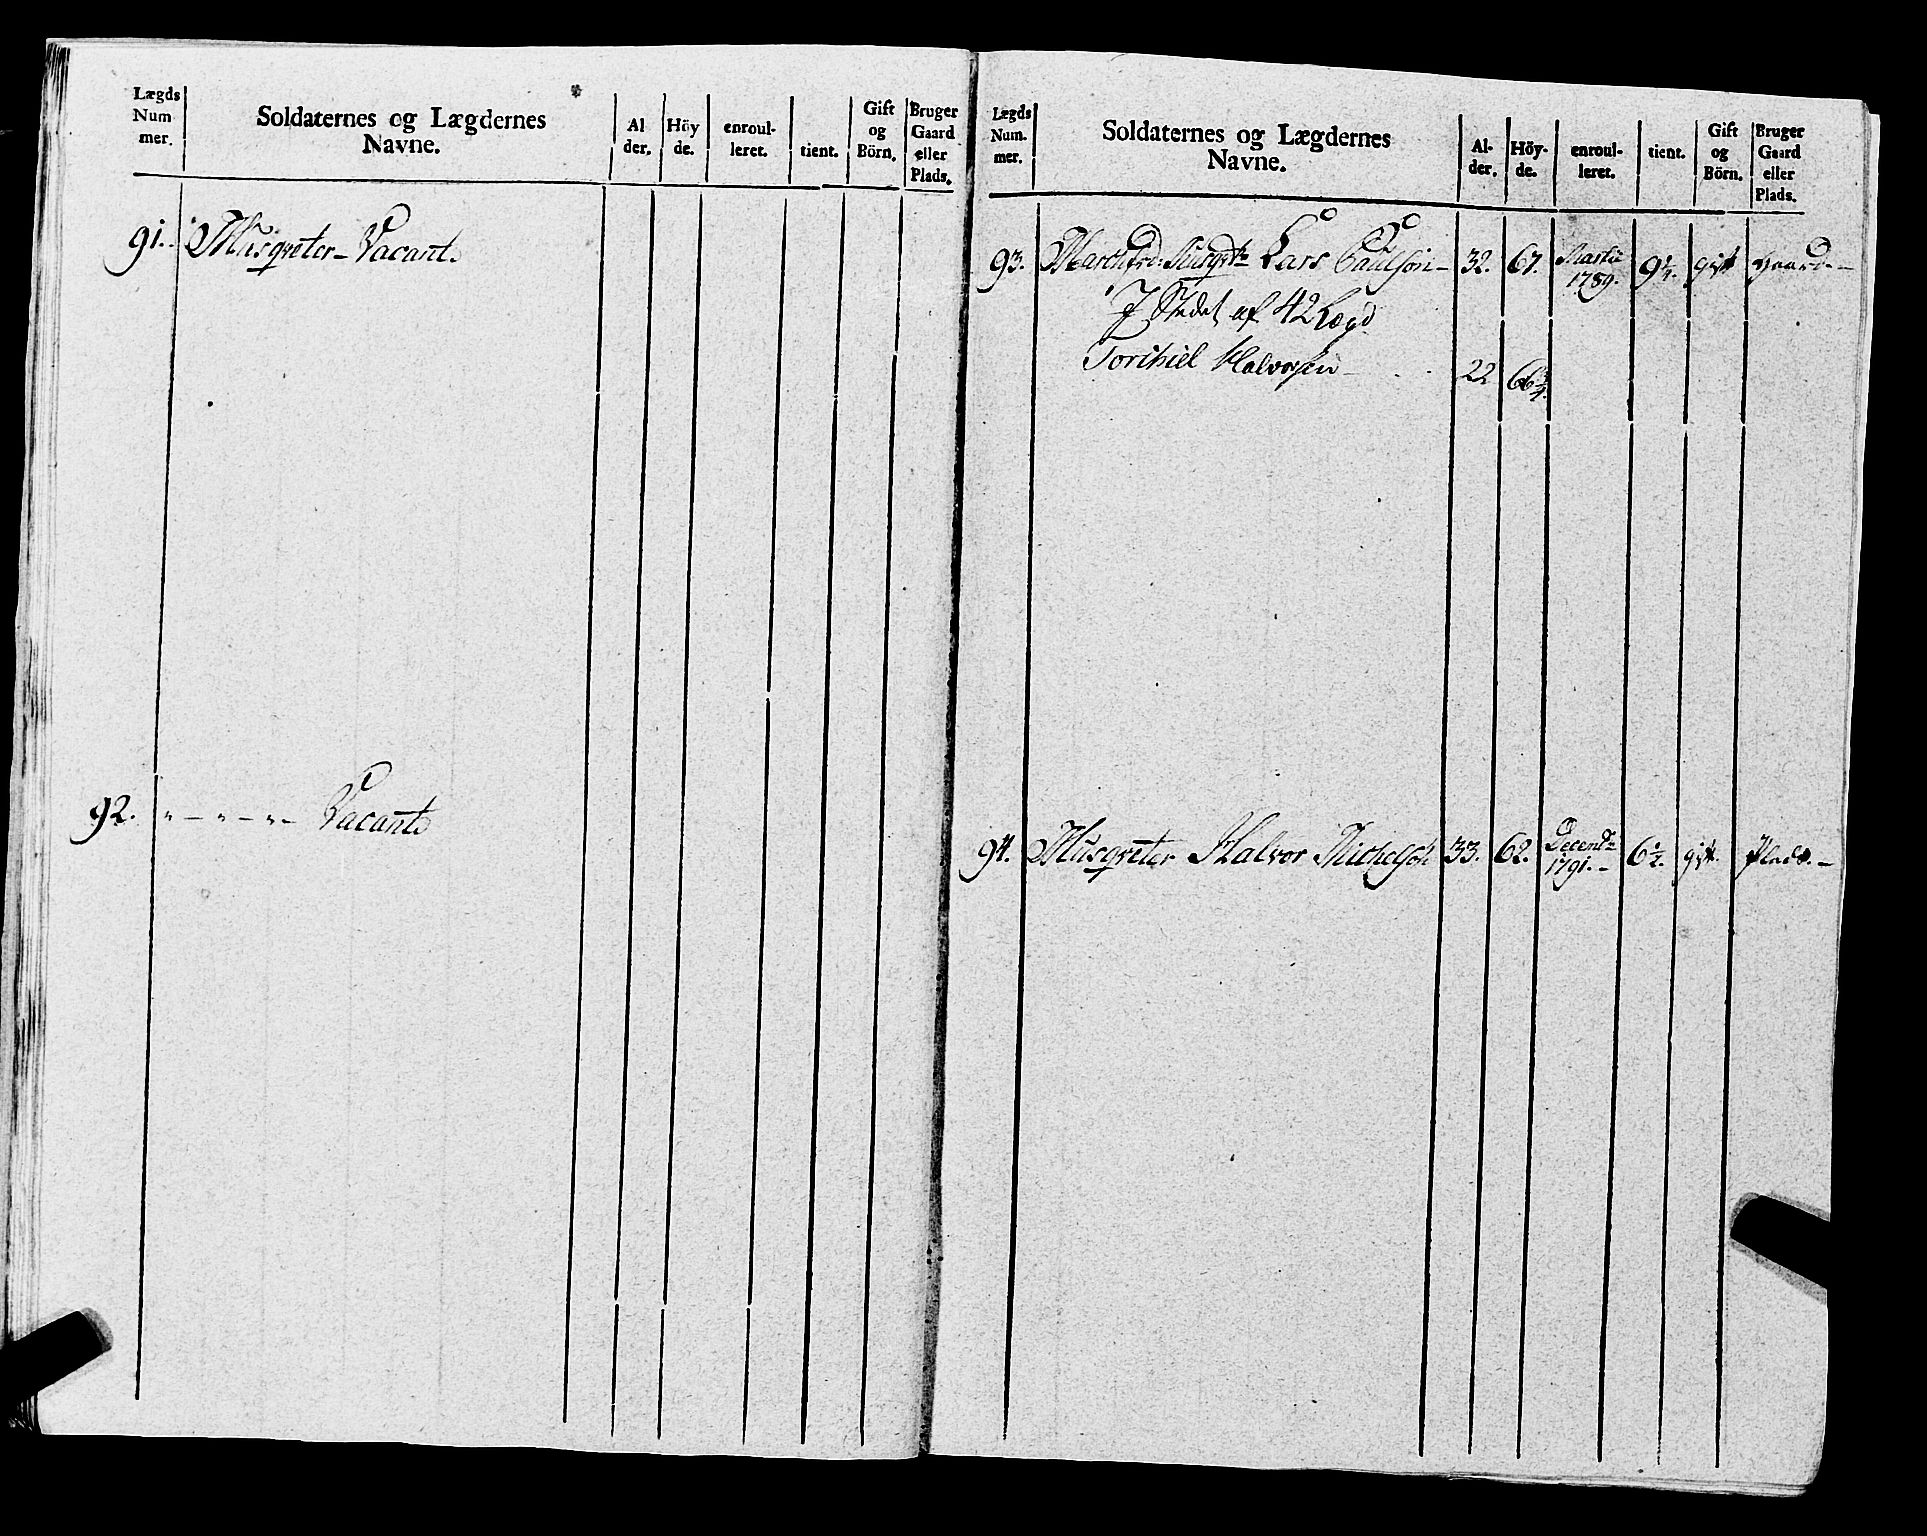 Lægds
Num
mer.
Soldaternes og Lægdernes
Navne.
Al
der.
Höy
de.
enroul-
leret.
tient.
Gift
og
Börn.
Bruger
Gaard
eller
Plads.
91. Musqveter - Vacant.
92. " - " - " - Vacant
Lægds
Num.
mer.
Soldaternes og Lægdernes
Navne.
Al-
der.
Höy-
de.
enroul-
leret.
tient.
Gift
og
Börn.
Bruger
Gaard
eller
Plads.
93. Lars Paulson - 32. 67. Martii 1789. 9 1/4. gift Gaard. -
I Stedet af 42 Lægd
Torchiel Halvorsen - 22 66 3/4.
94. Musqveter Halvor Michelson 33. 62. 1791. - 6 1/2. gift. Plads. -